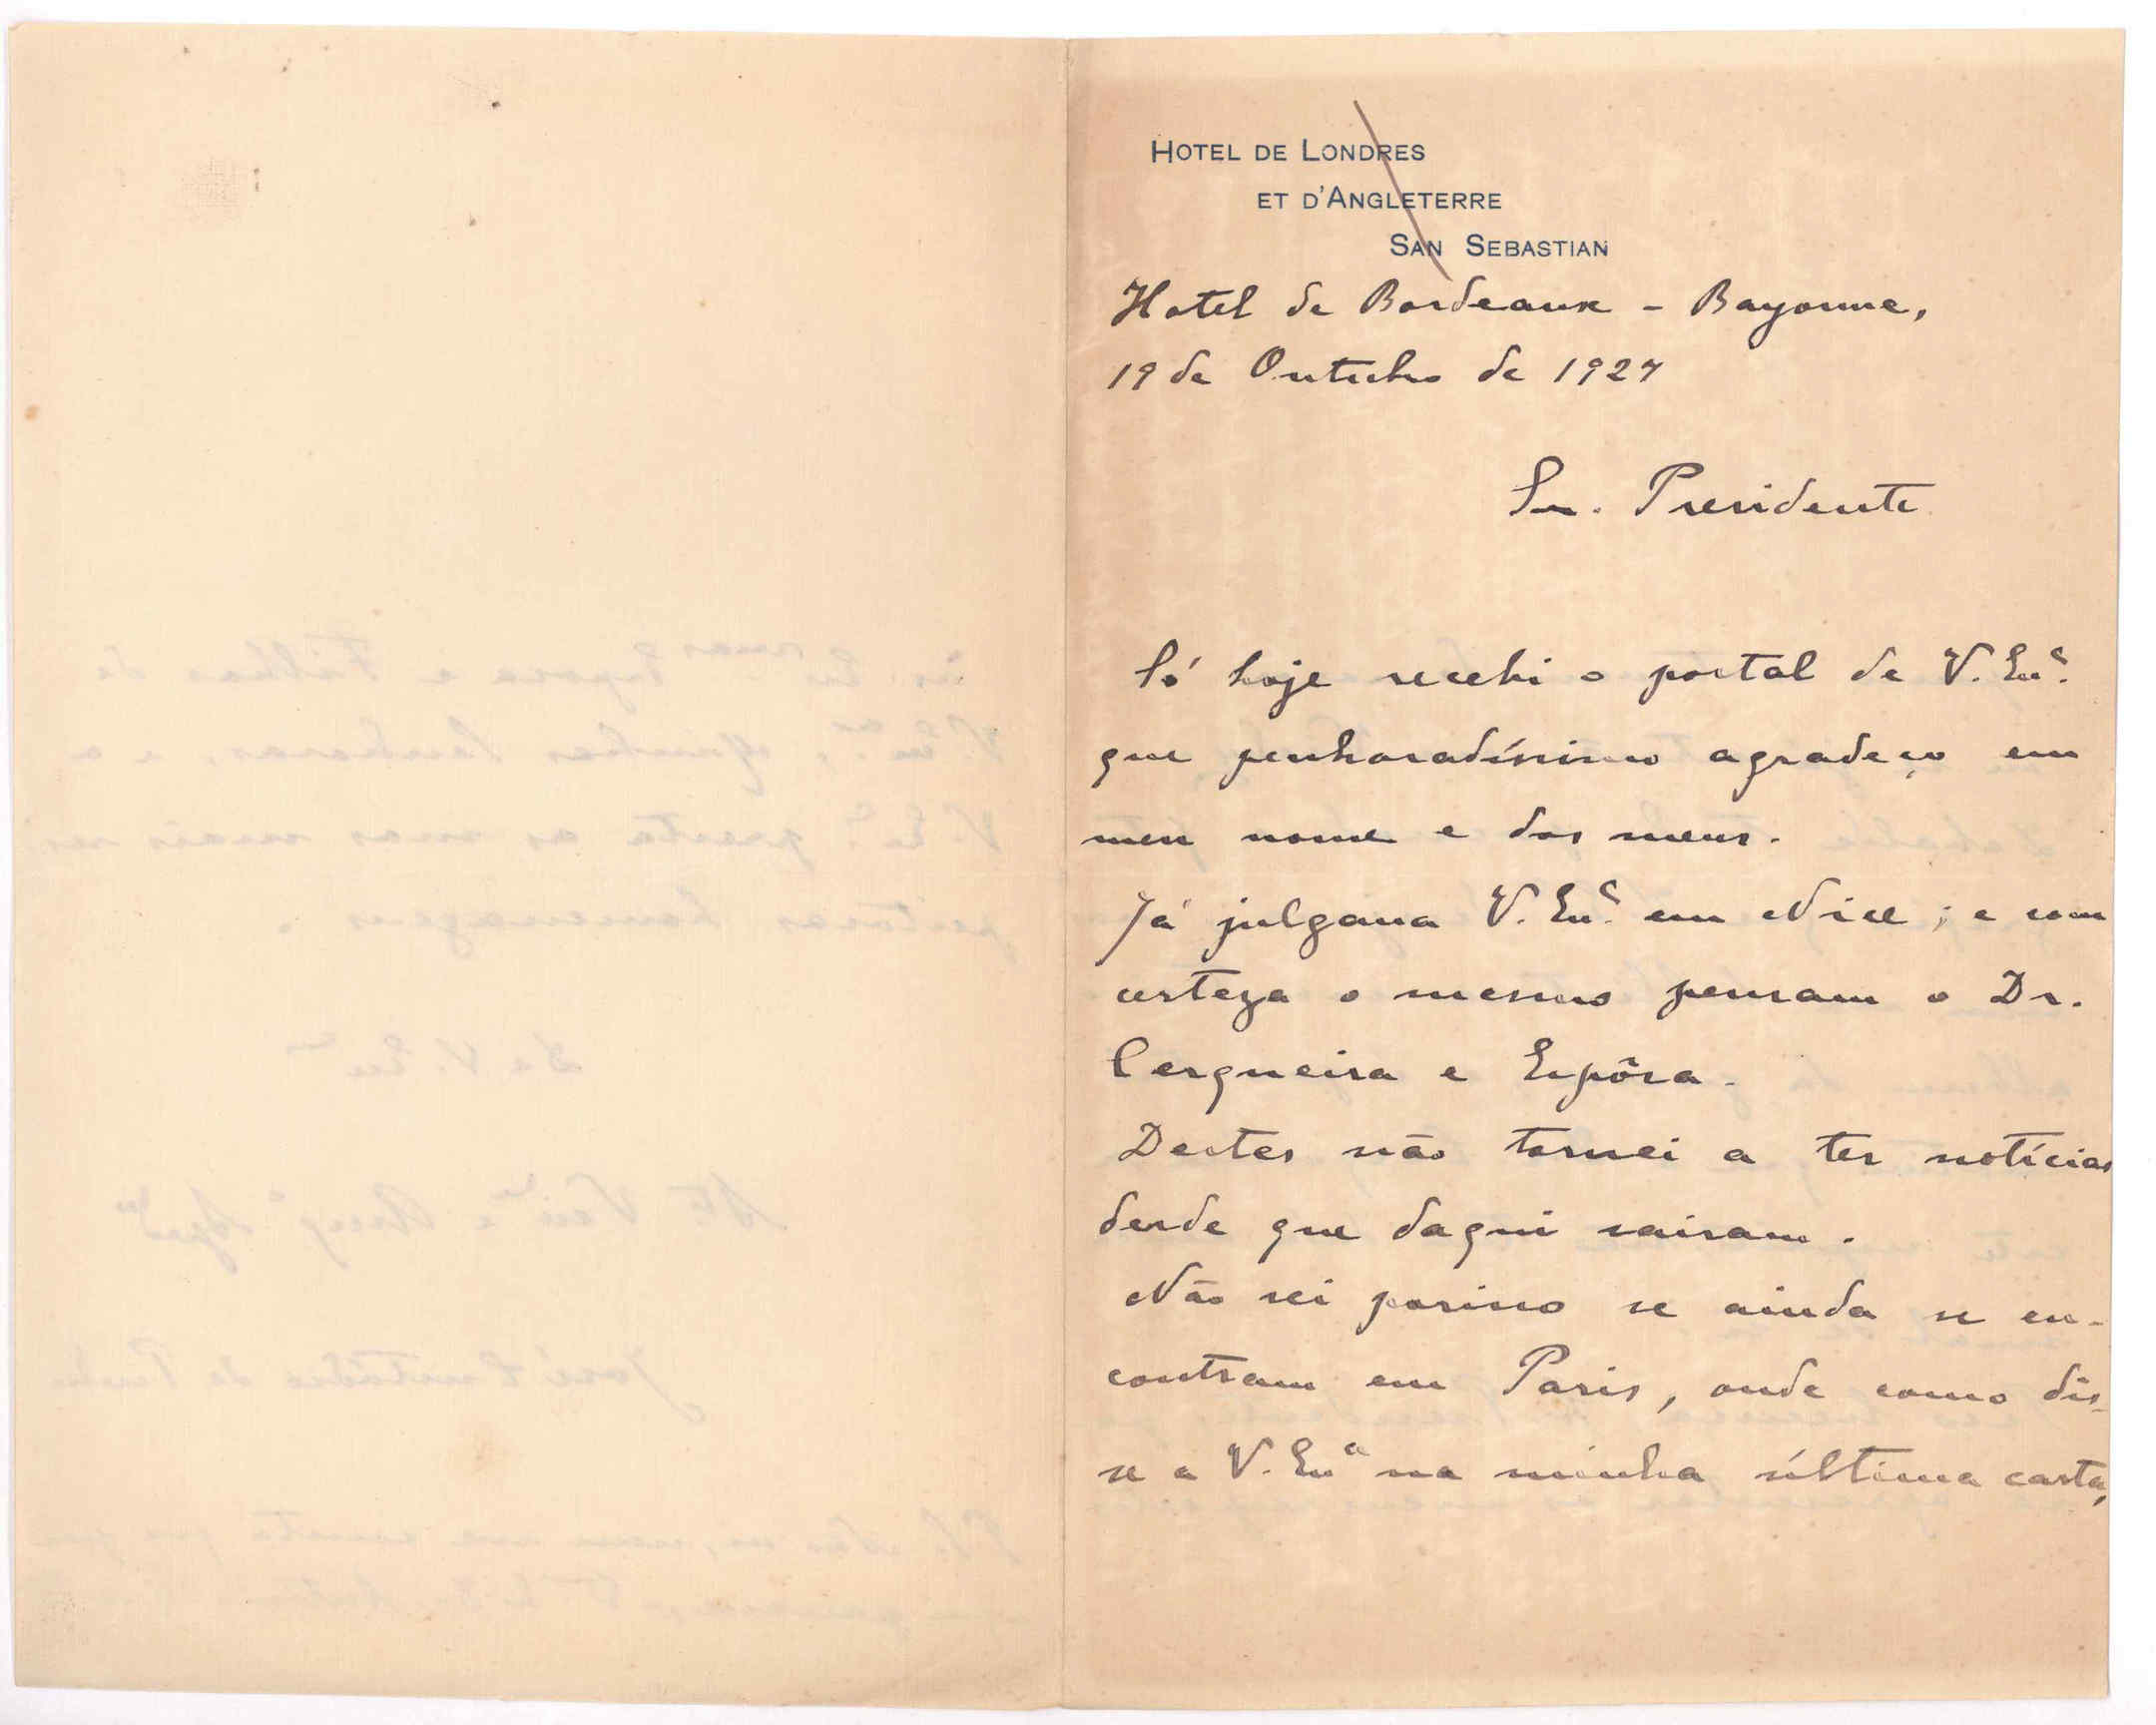 HOTEL DE LONDRES
ET D'ANGLETERRE
SAN SEBASTIAN
Hotel de Bordeaux - Bayonne,
19 de Outubro de 1927
Sr. Presidente
Só hoje recebi o postal de V. Exª.
que penhoradíssimo agradeço em
meu nome e dos meus.
Já julgava V. Exª. em Nice; e com
certeza o mesmo pensam o Dr.
Cerqueira e Espôsa.
Destes não tornei a ter notícias
desde que daqui sairam.
Não sei porisso se ainda se en-
contram em Paris, onde como dis-
se a V. Exª na minha última carta,